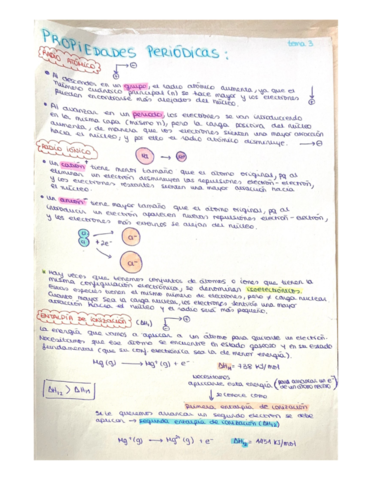 PROPIEDADES PERIÓDICAS:
tema 3
RADIO ATÓMICO
• Al descender en un grupo, el radio atómico aumenta, ya que el
número cuántico principal (n) se hace mayor y los electrones
pueden encontrarse más alejados del núcleo.
• Al avanzar en un periodo, los electrones se van introduciendo
en la misma capa (mismo n), pero la carga positiva del núcleo
aumenta, de manera que los electrones sienten una mayor atracción
hacia el núcleo, y por ello el radio atómico disminuye.
RADIO IÓNICO
• Un catión tiene menos tamaño que el átomo original, pq al
eliminar un electrón disminuyen las repulsiones electrón-electrón,
y los electrones restantes sienten una mayor atracción hacia
el núcleo.
• Un anión tiene mayor tamaño que el átomo original, pq al
introducir un electrón aparecen nuevas repulsiones electrón-electrón,
y los electrones más externos se alejan del núcleo.
+ 2e⁻
• Hay veces que tenemos conjuntos de átomos o iones que tienen la
misma configuración electrónica, se denominan isoelectrónicos.
Estas especies tienen el mismo número de electrones, pero ≠ carga nuclear.
Cuanto mayor sea la carga nuclear, los electrones sentirán una mayor
atracción hacia el núcleo y el radio será más pequeño.
ENTALPÍA DE IONIZACIÓN (ΔHi)
La energía que vamos a aplicar a un átomo para quitarle un electrón.
Necesitamos que ese átomo se encuentre en estado gaseoso y en su estado
fundamental (que su conf. electrónica sea la de menor energía).
Mg (g) → Mg⁺ (g) + e⁻ ΔHi1 = 738 KJ/mol
necesitamos
aplicarle esta energía (para arrancar un e⁻
se conoce como
ΔHi2 > ΔHi1
primera entalpía de ionización
Si le queremos arrancar un segundo electrón se debe
aplicar → segunda entalpía de ionización (ΔHi2)
Mg⁺ (g) → Mg²⁺ (g) + e⁻ ΔHi2 = 1451 KJ/mol